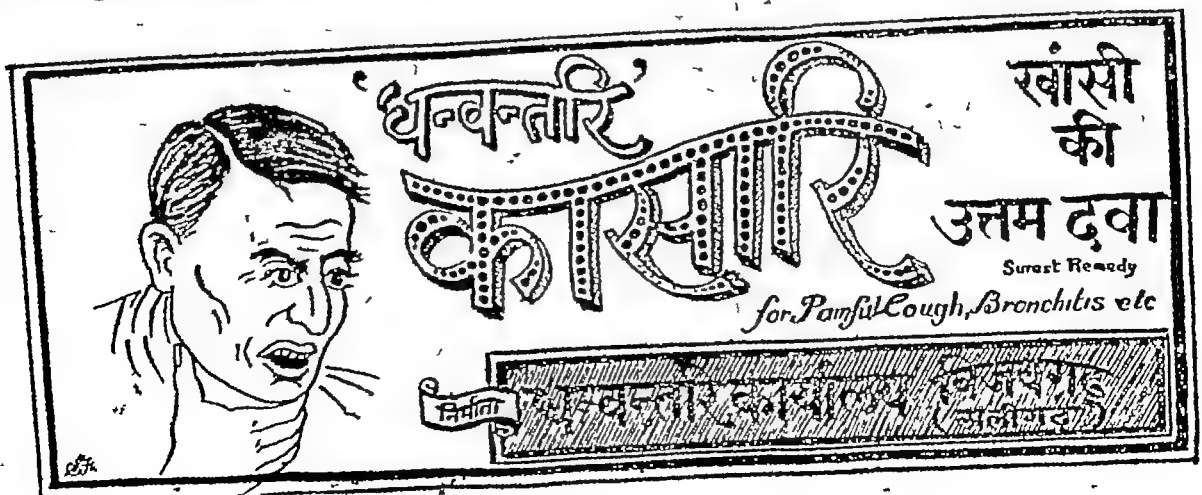 'धन्वन्तरि'
कासारि
खांसी
की
उत्तम दवा
Surest Remedy
for Painful Cough, Bronchitis etc
निर्माता
धन्वन्तरि कार्यालय